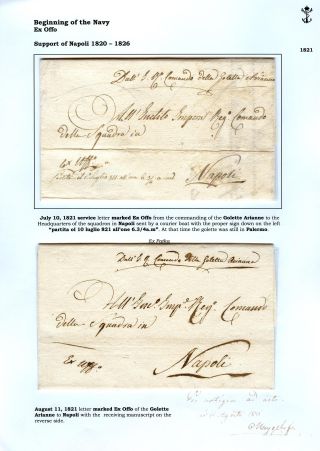 Beginning of the Navy
Ex Offo
Support of Napoli 1820 – 1826
1821
Dall' I. R. Comando della Goletta Arianna
All' Inclito Imperi Reg. Comando
della Squadra in
Ex Uffo
Napoli
July 10, 1821 service letter marked Ex Offo from the commanding of the Golette Arianne to the
Headquarters of the squadron in Napoli sent by a courier boat with the proper sign down on the left
"partita ol 10 luglio 821 all'one 6.3/4a.m". At that time the golette was still in Palermo.
Ex Perlus
Dall' I. R. Comando della Goletta Arianna
All' Imp. Reg. Comando
della Squadra in
Ex Uffo
Napoli
August 11, 1821 letter marked Ex Offo of the Golette
Arianne to Napoli with the receiving manuscript on the
reverse side.